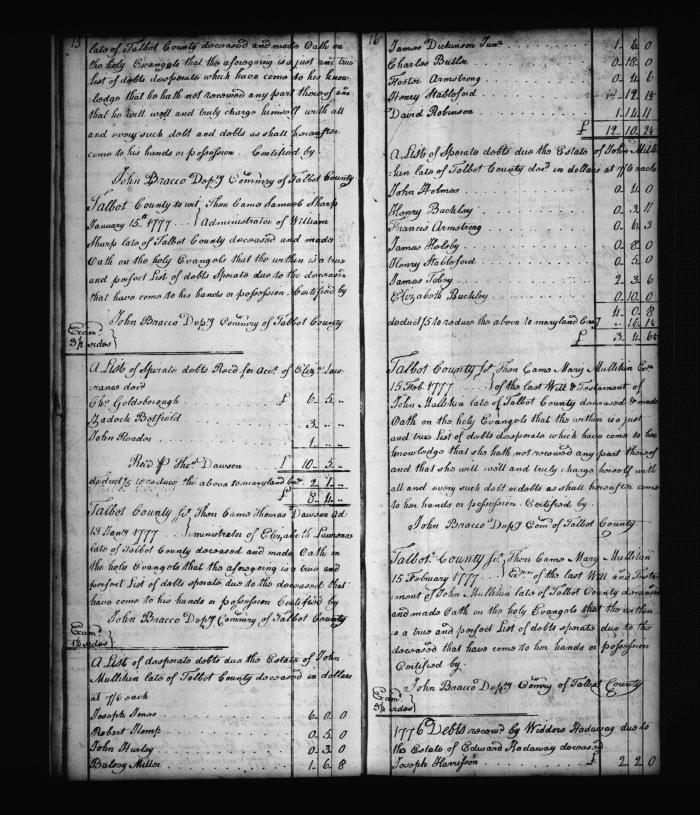 15
late of Talbot County deceased and made Oath on
the holy Evangels that the aforegoing is a just and true
List of debts desperate which have come to his know-
ledge that he hath not received any part thereof and
that he will well and truly charge himself with all
and every such debt and debts as shall hereafter
come to his hands or possession. Certified by
John Bracco Depy Comry of Talbot County
Talbot County to wit, Then Came Samuel Sharp
January 15th 1777 ... } Administrator of William
Sharp late of Talbot County deceased and made
Oath on the holy Evangels that the within is a true
and perfect List of debts Sperate due to the deceased
that have come to his hands or possession. Certified by
John Bracco Depy Commry of Talbot County
Exam
3½ sides }
A List of Sperate debts Recd for Acct of Elizth Law-
rance decd
Chs Goldsborough £ 6. 5. ..
Zadock Botfield 3. .. ..
John Reader 1. .. ..
Recd ⅌ Thos Dawson £ 10. 5. ..
deduct ⅕ to reduce the above to maryland Cury 2. 1. ..
£ 8. 4. ..
Talbot County Sct. Then Came Thomas Dawson Ad-
13 Jany 1777 ..... } ministrator of Elizabeth Lawrence
late of Talbot County deceased and made Oath on
the holy Evangels that the aforegoing is a true and
perfect List of debts sperate due to the deceased that
have come to his hands or possession Certified by
John Bracco Depy Commry of Talbot County
Exam
1½ sides }
A List of desperate debts due the Estate of John
Mullikin late of Talbot County deceased in dollars
at 7/6 each
Joseph Jones 6. 0. 0
Robert Kemp 0. 5. 0
John Hurley 0. 3. 0
Balsey Miller 1. 6. 8
16
James Dickinson Junr 1. 6. 0
Charles Butler 0. 18. 0
Foster Armstrong 0. 4. 6
Henry Stableford
David Robinson 1. 14. 11
£ 12. 10. 2½
A List of Sperate debts due the Estate of John Mulli-
kin late of Talbot County decd in dollars at 7/6 each
John Holmes 0. 4. 0
Henry Buckley 0. 3. 11
Francis Armstrong 0. 6. 3
James Heloby 0. 8. 0
Henry Stableford 0. 5. 0
James Tobey 2. 3. 6
Elizabeth Buckley 0. 10. 0
4. 0. 8
deduct ⅕ to reduce the above to maryland Curry .. 16. 1½
£ 3. 4. 6½
Talbot County Sct. Then Came Mary Mullikin Exx
15 Feb. 1777 ..... } of the last Will & Testament of
John Mullikin late of Talbot County deceased & made
Oath on the holy Evangels that the within is a just
and true List of debts desperate which have come to her
knowledge that she hath not received any part thereof
and that she will well and truly charge herself with
all and every such debt or debts as shall hereafter come
to her hands or possession. Certified by.
John Bracco Depy Com of Talbot County
Talbot County Sct. Then Came Mary Mullikin
15 February 1777 ..... } Exx of the last Will and Testa-
ment of John Mullikin late of Talbot County deceased
and made Oath on the holy Evangels that the within
is a true and perfect List of debts sperate due to the
deceased that have come to her hands or possession
Certified by.
John Bracco Depy Comry of Talbot County
Exam
sides }
1776 Debts received by Widders Hadaway due to
the Estate of Edward Hadaway deceased
Joseph Harrisson £ 2. 2. 0